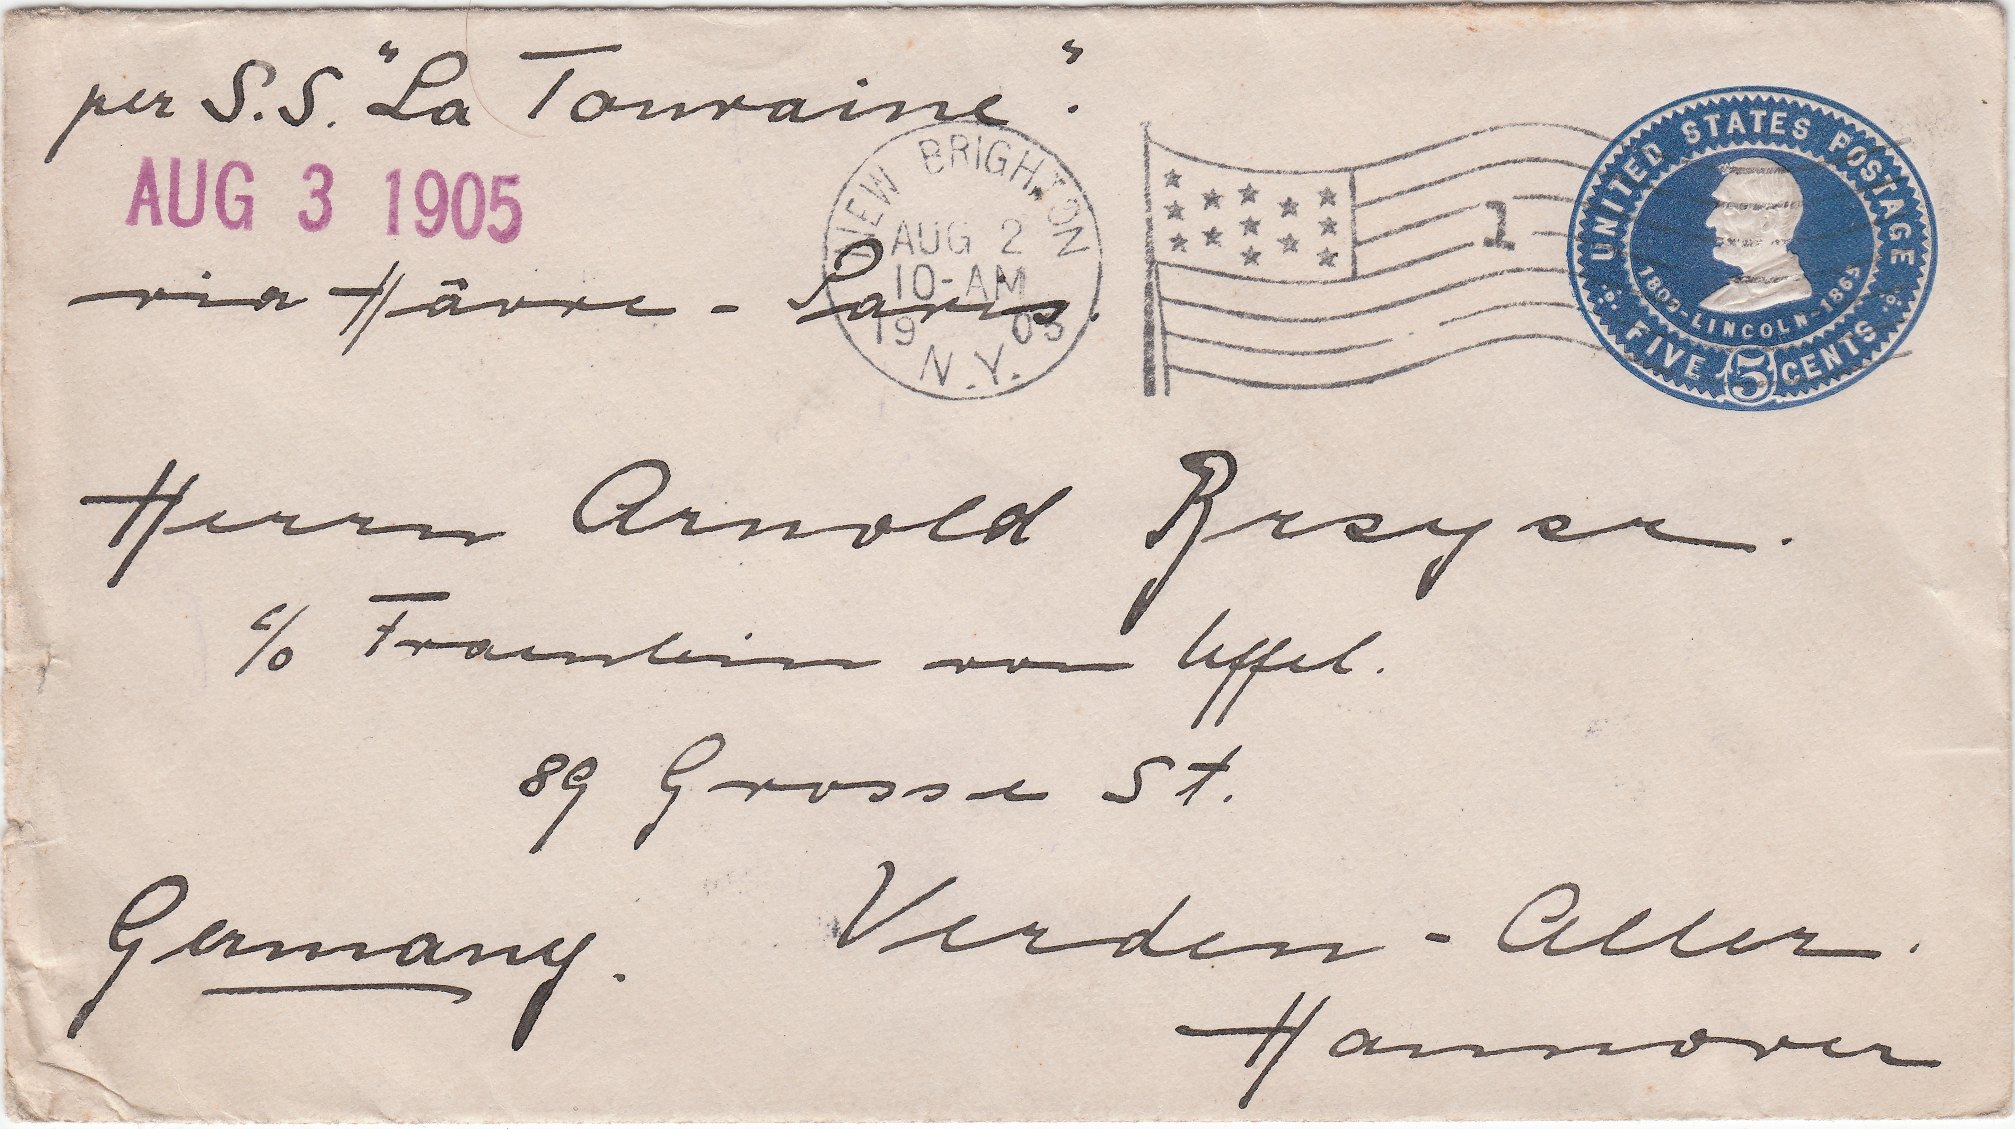 per S.S. "La Touraine".
AUG 3 1905
via Hâvre - Paris.
NEW BRIGHTON
AUG 2
10-AM
1905
N.Y.
1
UNITED STATES POSTAGE
1809-LINCOLN-1865
FIVE 5 CENTS
Herrn Arnold Breyer.
c/o Fraeulein von Uffel.
89 Grosse St.
Verden - Aller.
Germany.
Hannover